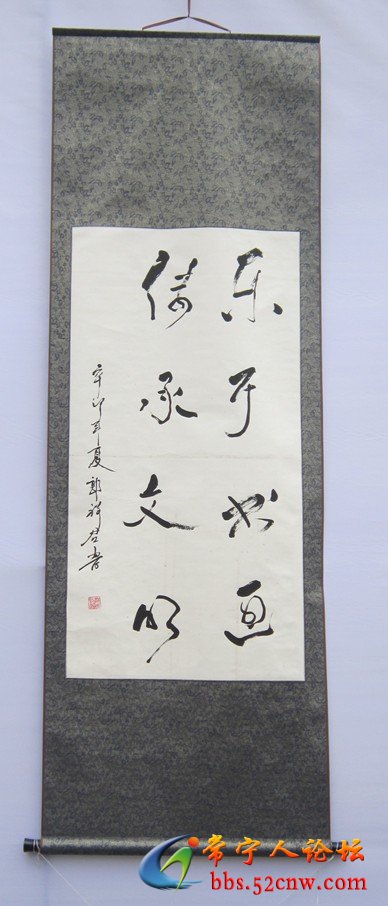 乐于书画
传承文明
辛卯年夏郭祥书
常宁人论坛
bbs.52cnw.com